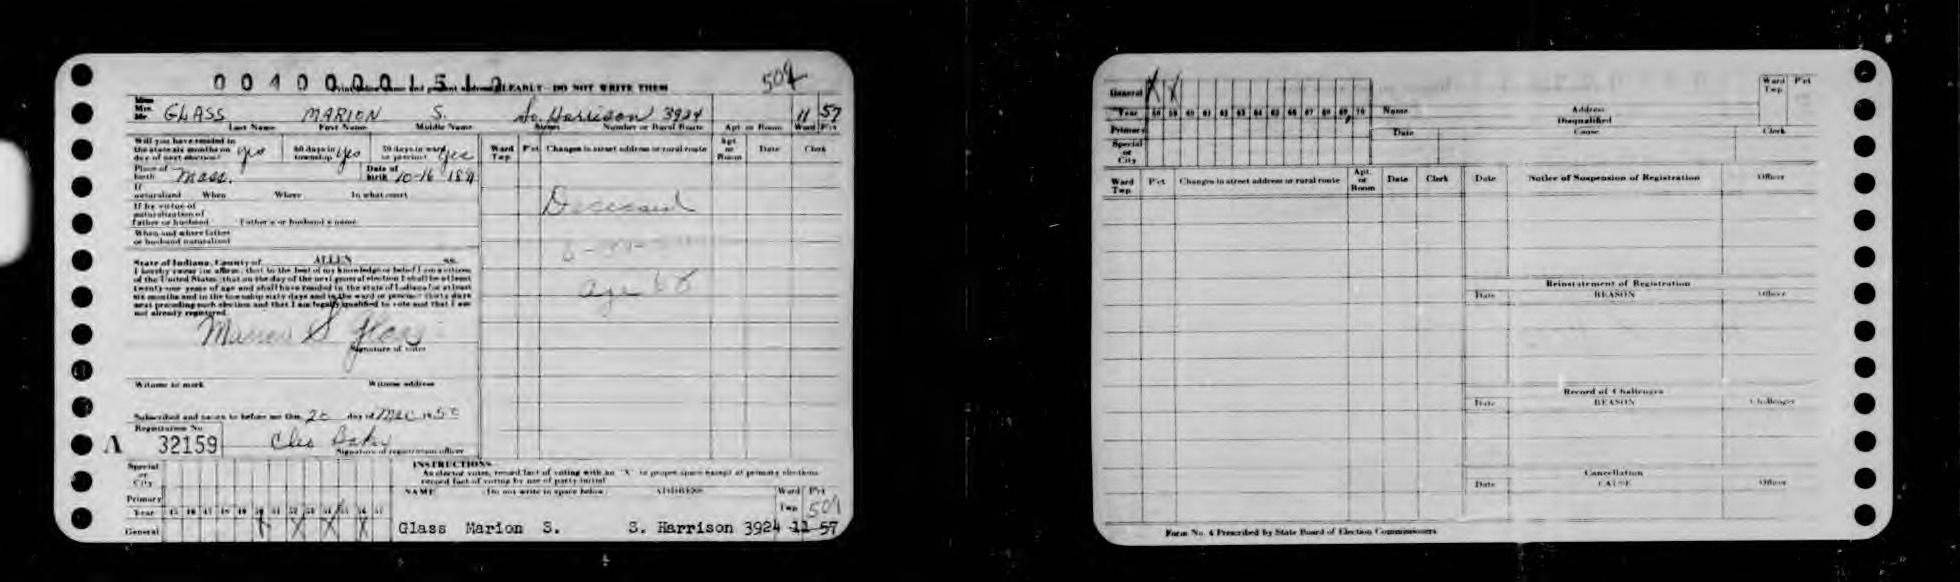 0 0 4 0 0 0 0 1 5 1 0 CLEARLY—DO NOT WRITE THEM 509
Miss
Mrs.
Mr. GLASS MARION S. So. Harrison 3924 11 57
Last Name First Name Middle Name Street Number or Rural Route Apt or Room Ward Pct
Will you have resided in
the state six months on
day of next election? yes 60 days in
township yes 30 days in ward
or precinct yes
Ward
Twp. Pct Changes in street address or rural route Apt.
or
Room Date Clerk
Place of
birth Mass. Date of
birth 10-16
If
naturalized When Where In what court
Deceased
If by virtue of
naturalization of
Father or husband Father's or husband's name
When and where father
or husband naturalized
age
State of Indiana, County of ALLEN ss.
I hereby swear (or affirm) that to the best of my knowledge or belief I am a citizen
of the United States; that on the day of the next general election I shall be at least
twenty-one years of age and shall have resided in the state of Indiana for at least
six months and in the township sixty days and in the ward or precinct thirty days
next preceding such election and that I am legally qualified to vote and that I am
not already registered.
Marion S Glass
Signature of voter
Witness to mark Witness address
Subscribed and sworn to before me this 20 day of
Registration No.
A 32159 Cleo
Signature of registration officer
Special
or
City
Primary
Year 45 46 47 48 49 50 51 52 53 54 55 56 57
General X X X X
INSTRUCTIONS
As elector votes, record fact of voting with an "X" in proper space except at primary elections
record fact of voting by use of party initial
NAME (Do not write in space below) ADDRESS Ward Pct
Twp 509
Glass Marion S. S. Harrison 3924 11 57
General X X
Year 58 59 60 61 62 63 64 65 66 67 68 69 70
Primary
Special
or
City
Name Address Ward Pct
Twp
Disqualified
Date Cause Clerk
Ward
Twp. Pct Changes in street address or rural route Apt.
or
Room Date Clerk
Date Notice of Suspension of Registration Officer
Reinstatement of Registration
Date REASON Officer
Record of Challenges
Date REASON Challenger
Cancellation
Date CAUSE Officer
Form No. 4 Prescribed by State Board of Election Commissioners